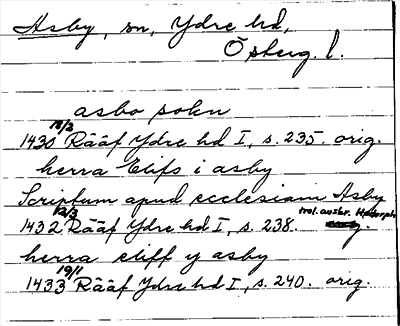 Asby, sn, Ydre hd,
Österg. l.
asbo sokn
1430 18/3 Rääf Ydre hd I, s. 235. orig.
herra Elifs i asby
Scriptum apud ecclesiam Asby
1432 12/3 Rääf Ydre hd I, s. 238. trol. avskr.
herra eliff y asby
1433 19/1 Rääf Ydre hd I, s. 240. orig.